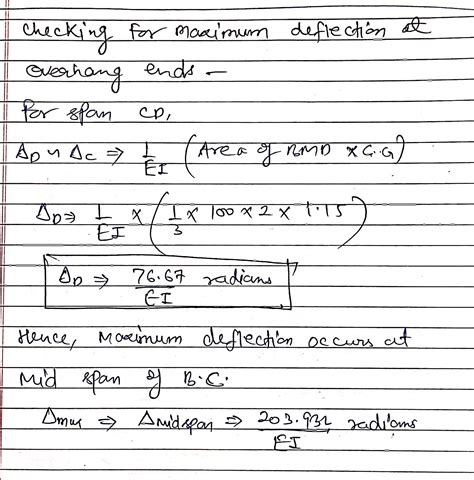 checking for maximum deflection at
overhang ends –
for span CD,
ΔD ~ ΔC ⇒ 1/EI (Area of BMD × C.G)
ΔD ⇒ 1/EI × (1/3 × 100 × 2 × 1.15)
ΔD ⇒ 76.67/EI radians
Hence, Maximum deflection occurs at
Mid span of B.C.
Δmax ⇒ Δmidspan ⇒ 203.932/EI radians